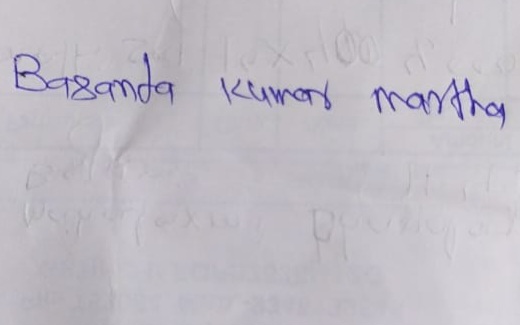 Basanda Kumar martha